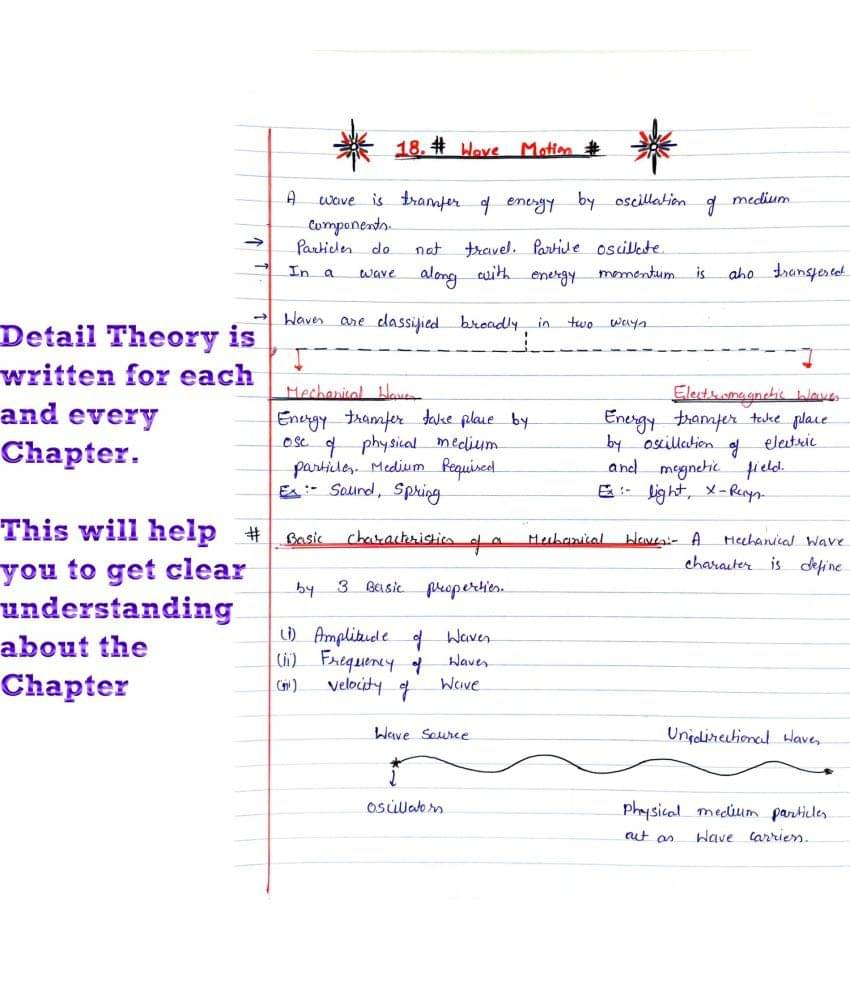 18. # Wave Motion #
A wave is transfer of energy by oscillation of medium
components.
→ Particles do not travel. Particle oscillate.
→ In a wave along with energy momentum is also transfered
→ Waves are classified broadly in two ways
Mechanical Waves
Energy transfer take place by
osc of physical medium
particles. Medium Required
Ex :- Sound, Spring
Electromagnetic Waves
Energy transfer take place
by oscillation of electric
and magnetic field.
Ex :- light, X-Rays.
Detail Theory is
written for each
and every
Chapter.
This will help
you to get clear
understanding
about the
Chapter
# Basic Characteristics of a Mechanical Waves:- A Mechanical Wave
character is define
by 3 Basic properties.
(i) Amplitude of Waves
(ii) Frequency of Waves
(iii) Velocity of Wave
Wave Source
Unidirectional Waves
Oscillators
Physical medium particles
act as Wave carriers.